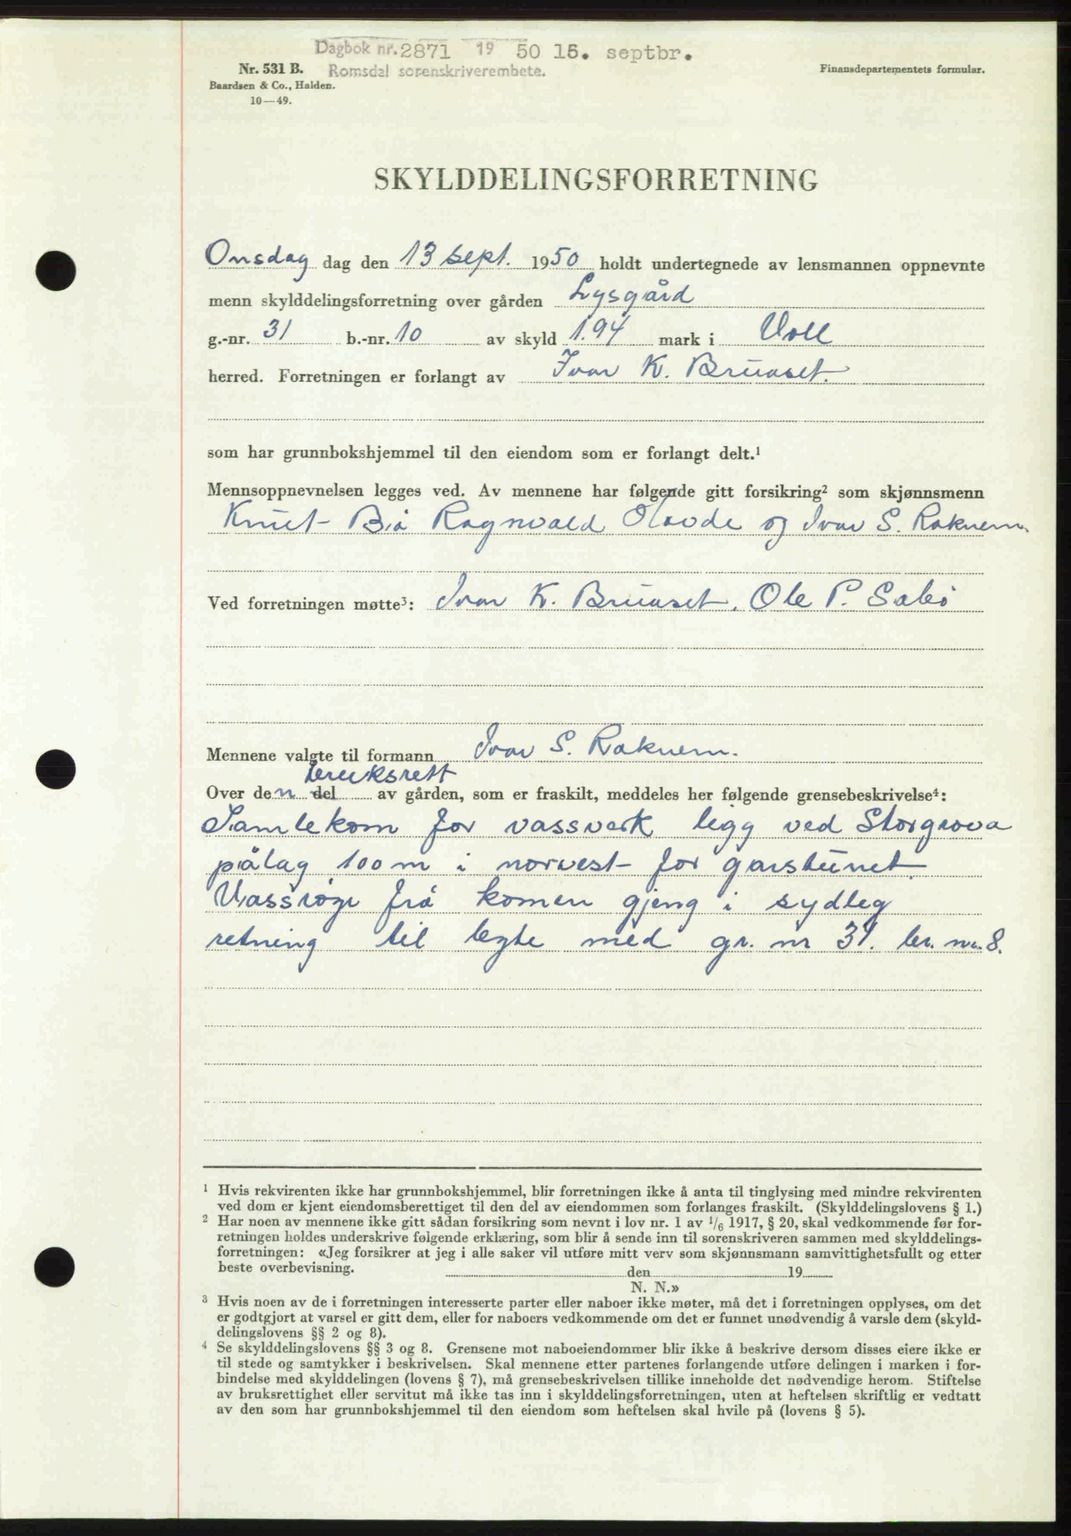 Dagbok nr. 2871 19 50 15. septbr.
Romsdal sorenskriverembete.
Nr. 531 B.
Baardsen & Co., Halden.
10—49.
Finansdepartementets formular.
SKYLDDELINGSFORRETNING
Onsdag dag den 13 sept. 1950 holdt undertegnede av lensmannen oppnevnte
menn skylddelingsforretning over gården Lysgård
g.-nr. 31 b.-nr. 10 av skyld 1.94 mark i Voll
herred. Forretningen er forlangt av Ivar K. Bruaset.
som har grunnbokshjemmel til den eiendom som er forlangt delt.¹
Mennsoppnevnelsen legges ved. Av mennene har følgende gitt forsikring² som skjønnsmenn
Knut Bø Ragnvald og Ivar S. Raknem
Ved forretningen møtte³: Ivar K. Bruaset, Ole P. Sæbø
Mennene valgte til formann Ivar S. Raknem.
bruksrett
Over den del av gården, som er fraskilt, meddeles her følgende grensebeskrivelse⁴:
Samlekom for vassverk ligg ved Storgrova
pålag 100 m i norvest for garstunet.
Vassrøyr frå komen gjeng i sydleg
retning til byte med gr. nr 31. br. nr. 8.
¹ Hvis rekvirenten ikke har grunnbokshjemmel, blir forretningen ikke å anta til tinglysing med mindre rekvirenten
ved dom er kjent eiendomsberettiget til den del av eiendommen som forlanges fraskilt. (Skylddelingslovens § 1.)
² Har noen av mennene ikke gitt sådan forsikring som nevnt i lov nr. 1 av 1/6 1917, § 20, skal vedkommende før for-
retningen holdes underskrive følgende erklæring, som blir å sende inn til sorenskriveren sammen med skylddelings-
forretningen: «Jeg forsikrer at jeg i alle saker vil utføre mitt verv som skjønnsmann samvittighetsfullt og etter
beste overbevisning. den 19
N. N.»
³ Hvis noen av de i forretningen interesserte parter eller naboer ikke møter, må det i forretningen opplyses, om det
er godtgjort at varsel er gitt dem, eller for naboers vedkommende om det er funnet unødvendig å varsle dem (skyld-
delingslovens §§ 2 og 8).
⁴ Se skylddelingslovens §§ 3 og 8. Grensene mot naboeiendommer blir ikke å beskrive dersom disses eiere ikke er
til stede og samtykker i beskrivelsen. Skal mennene etter partenes forlangende utføre delingen i marken i for-
bindelse med skylddelingen (lovens § 7), må grensebeskrivelsen tillike inneholde det nødvendige herom. Stiftelse
av bruksrettighet eller servitut må ikke tas inn i skylddelingsforretningen, uten at heftelsen skriftlig er vedtatt
av den som har grunnbokshjemmel til den eiendom som heftelsen skal hvile på (lovens § 5).